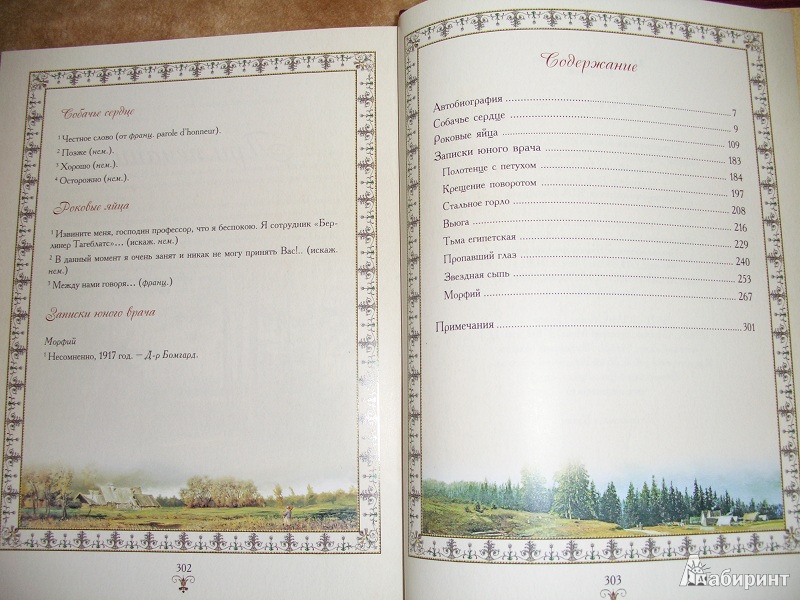 Собачье сердце
¹ Честное слово (от франц. parole d'honneur).
² Позже (нем.).
³ Хорошо (нем.).
⁴ Осторожно (нем.).
Роковые яйца
¹ Извините меня, господин профессор, что я беспокою. Я сотрудник «Бер-
линер Тагеблатс»... (искаж. нем.)
² В данный момент я очень занят и никак не могу принять Вас!.. (искаж.
нем.)
³ Между нами говоря... (франц.)
Записки юного врача
Морфий
¹ Несомненно, 1917 год. — Д-р Бомгард.
302
Содержание
Автобиография 7
Собачье сердце 9
Роковые яйца 109
Записки юного врача 183
Полотенце с петухом 184
Крещение поворотом 197
Стальное горло 208
Вьюга 216
Тьма египетская 229
Пропавший глаз 240
Звездная сыпь 253
Морфий 267
Примечания 301
303
Лабиринт